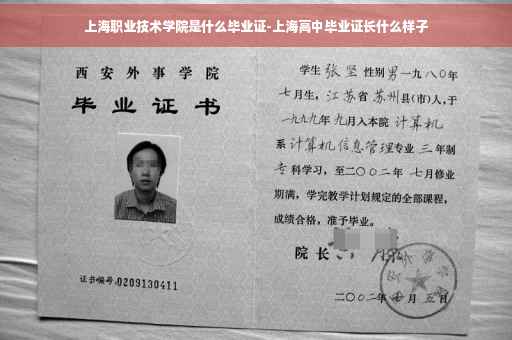 上海职业技术学院是什么毕业证-上海高中毕业证长什么样子
西安外事学院
毕业证书
证书编号:0209130411
学生 张坚 性别男一九八〇年
七月生，江苏省 苏州县(市)人,于
一九九九年 九月入本院 计算机
系 计算机信息管理专业 三 年制
专科学习，至二〇〇二年 七月修业
期满，学完教学计划规定的全部课程，
成绩合格，准予毕业。
院长
二〇〇二年 月 五日